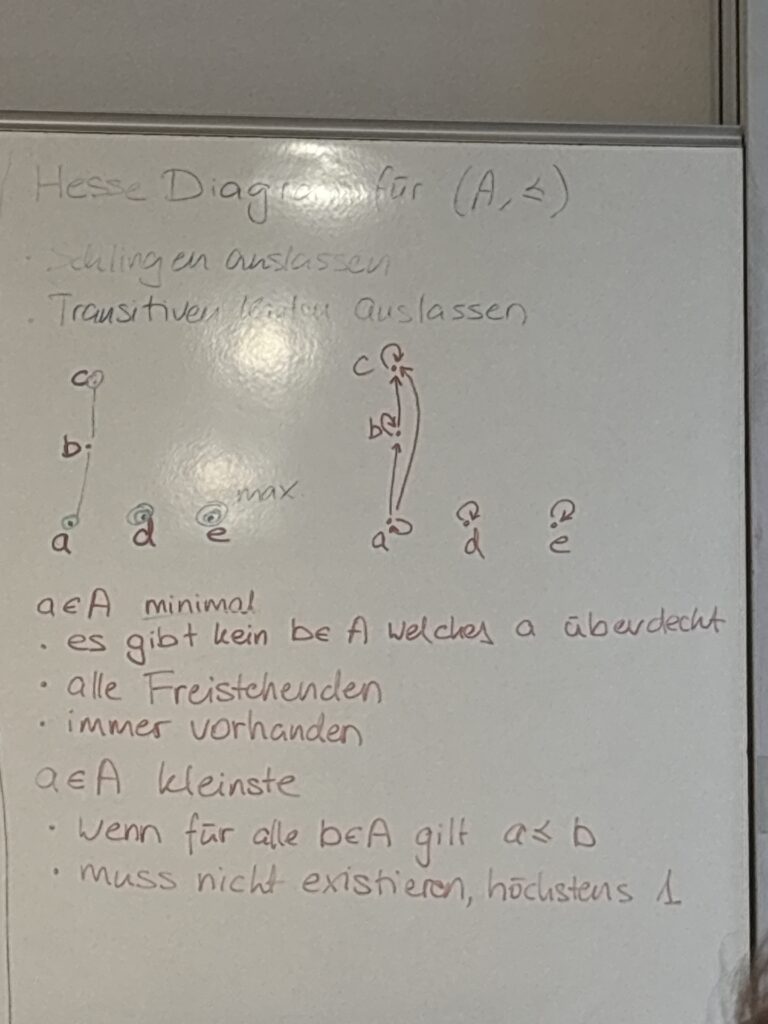 Hesse Diagram für (A, ≼)
· Schlingen auslassen
· Transitiven Kanten auslassen
c
b
a d e max
c
b
a d e
a∈A minimal
· es gibt kein b∈A welches a überdecht
· alle Freistehenden
· immer vorhanden
a∈A kleinste
· Wenn für alle b∈A gilt a≼b
· muss nicht existieren, höchstens 1